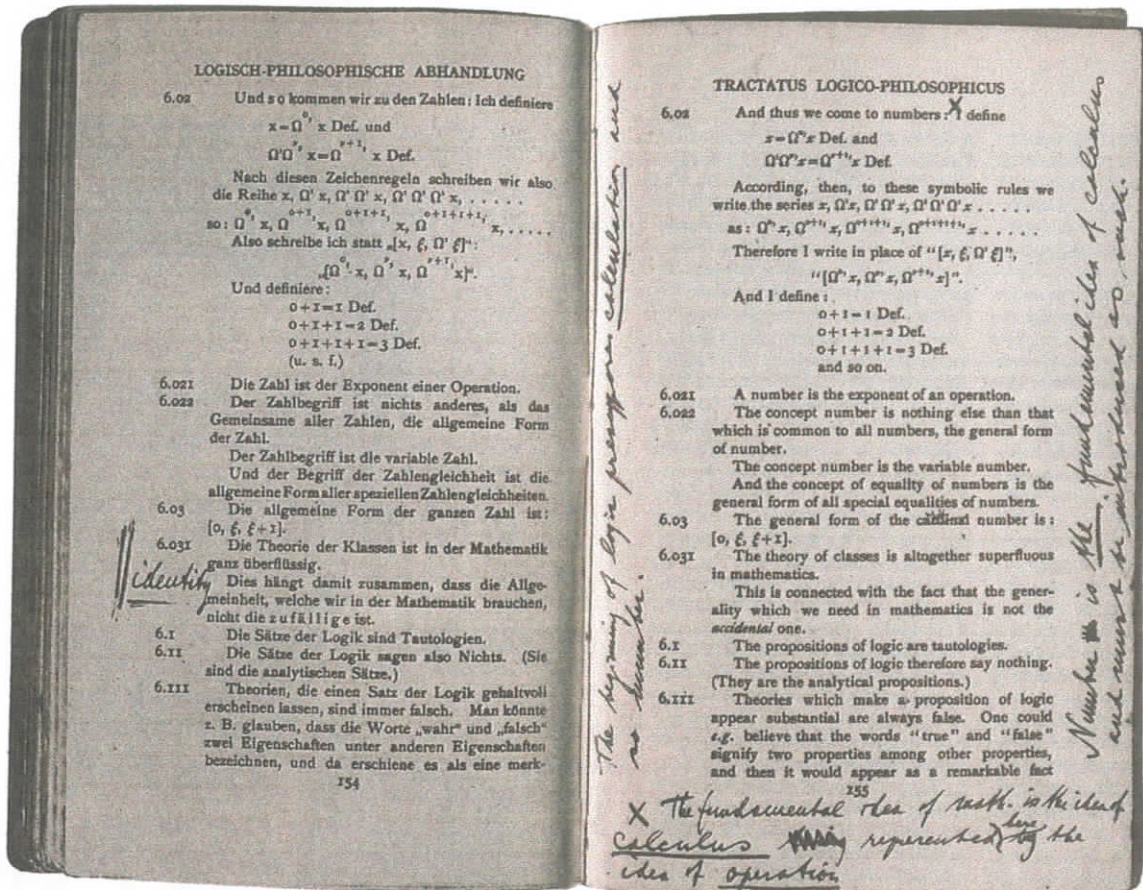 LOGISCH-PHILOSOPHISCHE ABHANDLUNG
6.02 Und so kommen wir zu den Zahlen: Ich definiere
x=Ω⁰’ x Def. und
Ω’Ω^ν’ x=Ω^ν+1’ x Def.
Nach diesen Zeichenregeln schreiben wir also
die Reihe x, Ω’ x, Ω’ Ω’ x, Ω’ Ω’ Ω’ x, . . . . .
so: Ω⁰’ x, Ω^0+1’ x, Ω^0+1+1’ x, Ω^0+1+1+1’ x, . . . . .
Also schreibe ich statt „[x, ξ, Ω’ ξ]“:
„[Ω⁰’ x, Ω^ν’ x, Ω^ν+1’ x]“.
Und definiere:
0+1=1 Def.
0+1+1=2 Def.
0+1+1+1=3 Def.
(u. s. f.)
6.021 Die Zahl ist der Exponent einer Operation.
6.022 Der Zahlbegriff ist nichts anderes, als das
Gemeinsame aller Zahlen, die allgemeine Form
der Zahl.
Der Zahlbegriff ist die variable Zahl.
Und der Begriff der Zahlengleichheit ist die
allgemeine Form aller speziellen Zahlengleichheiten.
6.03 Die allgemeine Form der ganzen Zahl ist:
[0, ξ, ξ+1].
6.031 Die Theorie der Klassen ist in der Mathematik
ganz überflüssig.
Dies hängt damit zusammen, dass die Allge-
meinheit, welche wir in der Mathematik brauchen,
nicht die zufällige ist.
6.1 Die Sätze der Logik sind Tautologien.
6.11 Die Sätze der Logik sagen also Nichts. (Sie
sind die analytischen Sätze.)
6.111 Theorien, die einen Satz der Logik gehaltvoll
erscheinen lassen, sind immer falsch. Man könnte
z. B. glauben, dass die Worte „wahr“ und „falsch“
zwei Eigenschaften unter anderen Eigenschaften
bezeichnen, und da erschiene es als eine merk-
154
identity
The beginning of logic presupposes calculation and
so number.
TRACTATUS LOGICO-PHILOSOPHICUS
6.02 And thus we come to numbers: X I define
x=Ω⁰’x Def. and
Ω’Ω^ν’x=Ω^ν+1’x Def.
According, then, to these symbolic rules we
write the series x, Ω’x, Ω’ Ω’ x, Ω’ Ω’ Ω’ x . . . . .
as: Ω⁰’ x, Ω^0+1’ x, Ω^0+1+1’ x, Ω^0+1+1+1’ x . . . . .
Therefore I write in place of “[x, ξ, Ω’ ξ]”,
“[Ω⁰’ x, Ω^ν’ x, Ω^ν+1’ x]”.
And I define:
0+1=1 Def.
0+1+1=2 Def.
0+1+1+1=3 Def.
and so on.
6.021 A number is the exponent of an operation.
6.022 The concept number is nothing else than that
which is common to all numbers, the general form
of number.
The concept number is the variable number.
And the concept of equality of numbers is the
general form of all special equalities of numbers.
6.03 The general form of the cardinal number is:
[0, ξ, ξ+1].
6.031 The theory of classes is altogether superfluous
in mathematics.
This is connected with the fact that the gener-
ality which we need in mathematics is not the
accidental one.
6.1 The propositions of logic are tautologies.
6.11 The propositions of logic therefore say nothing.
(They are the analytical propositions.)
6.111 Theories which make a proposition of logic
appear substantial are always false. One could
e.g. believe that the words “true” and “false”
signify two properties among other properties,
and then it would appear as a remarkable fact
155
Number is the fundamental idea of calculus
and must be introduced as such.
X The fundamental idea of math. is the idea of
calculus represented here by the
idea of operation